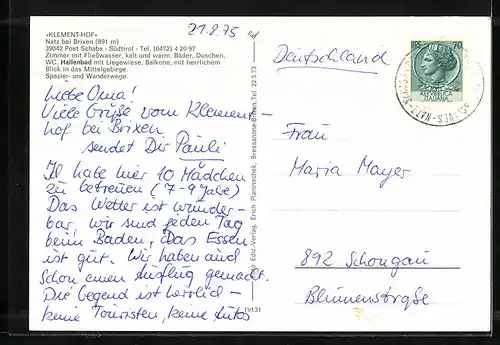 »KLEMENT-HOF«
Natz bei Brixen (891 m)
39042 Post Schabs - Südtirol - Tel. (0472) 4 20 97
Zimmer mit Fließwasser, kalt und warm. Bäder, Duschen,
WC. Hallenbad mit Liegewiese. Balkone, mit herrlichem
Blick in das Mittelgebirge.
Spazier- und Wanderwege.
21.8.75
Liebe Oma!
Viele Grüße vom Klement-
hof bei Brixen
sendet Dir Pauli
Ich habe hier 10 Mädchen
zu betreuen (7-9 Jahre)
Das Wetter ist wunder-
bar, wir sind jeden Tag
beim Baden, Das Essen
ist gut. Wir haben auch
schon einen Ausflug gemacht.
Die Gegend ist herrlich -
keine Touristen, keine Autos
Foto, Edit.-Verlag, Erich Planinschek, Bressanone-Brixen, Tel. 22 5 73
19131
Deutschland
70
Frau
Maria Mayer
892 Schongau
Blumenstraße